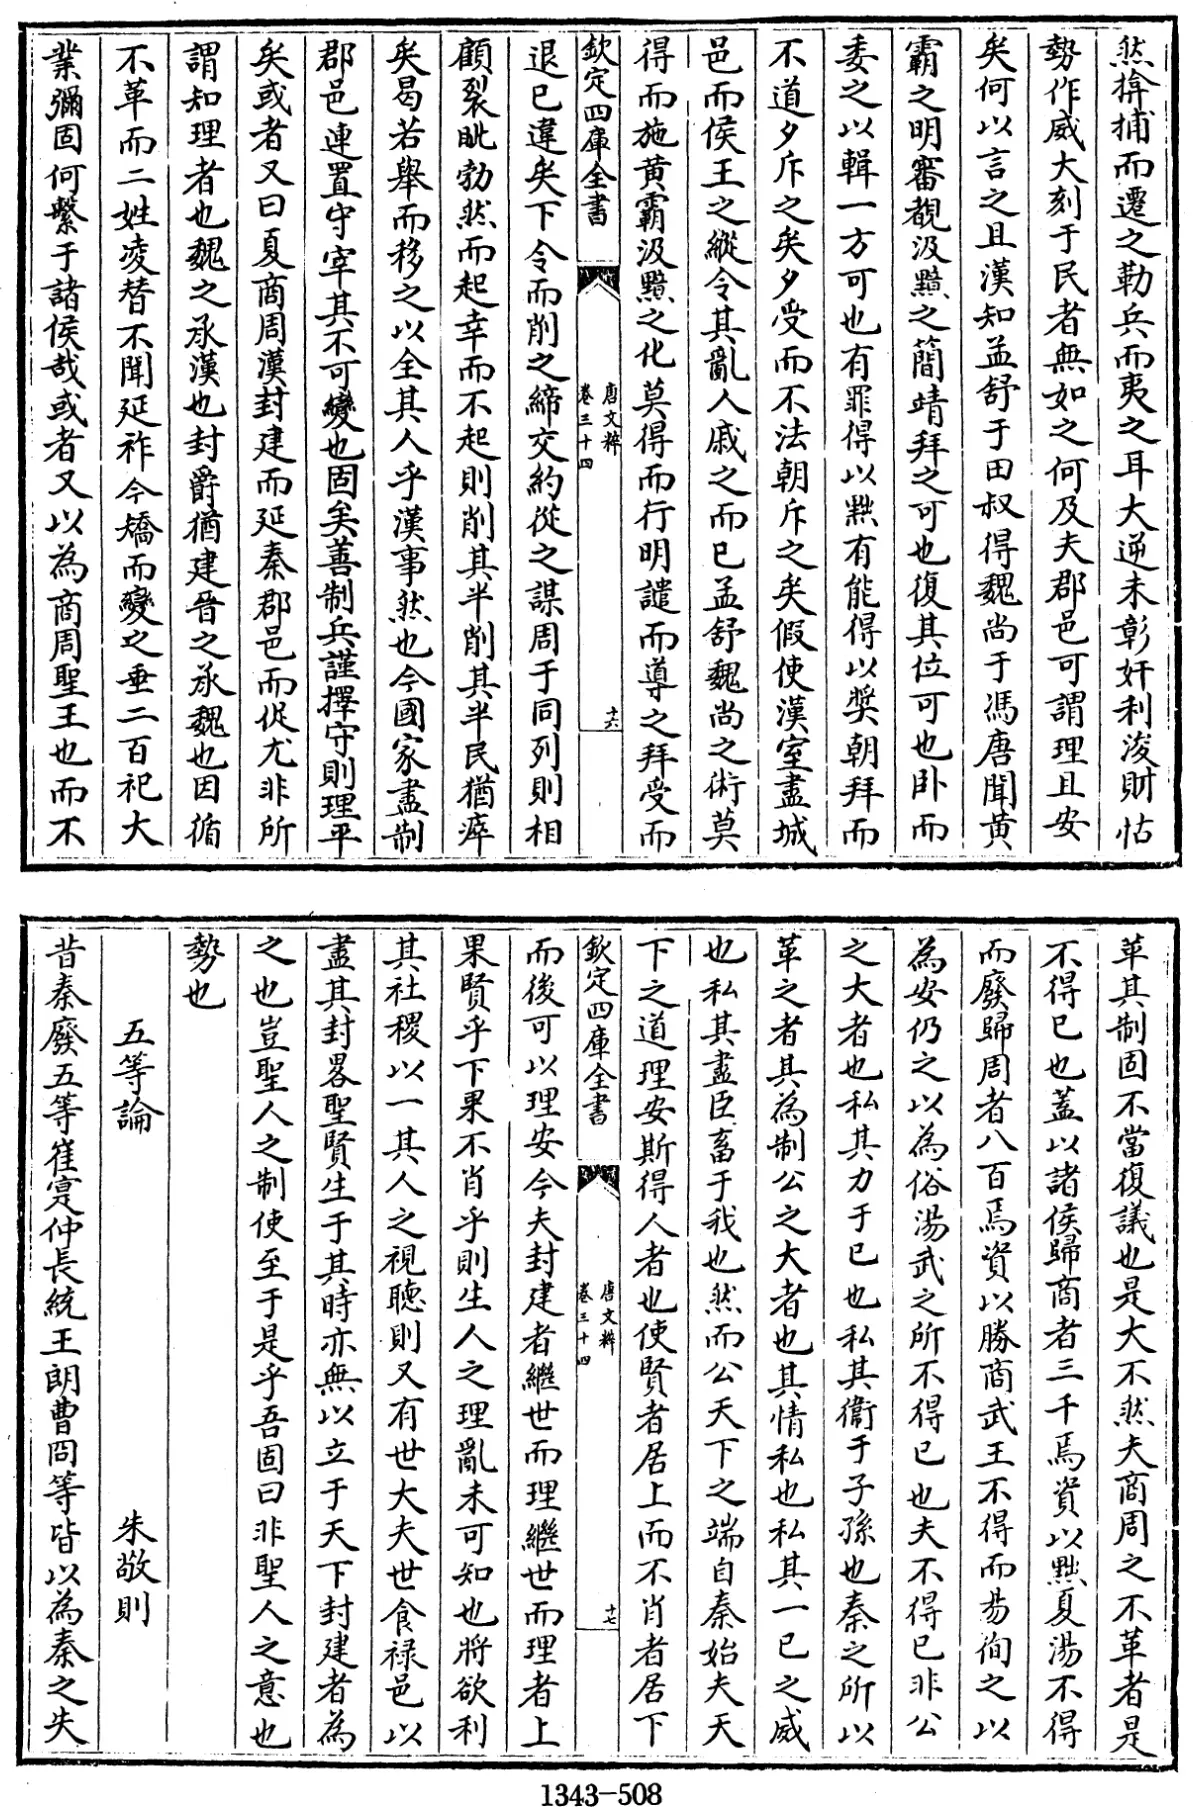 然揜捕而遷之勒兵而夷之耳大逆未彰奸利浚財怙
勢作威大刻于民者無如之何及夫郡邑可謂理且安
矣何以言之且漢知孟舒于田叔得魏尚于馮唐聞黄
霸之明審覩汲黯之簡靖拜之可也復其位可也卧而
委之以輯一方可也有罪得以黜有能得以奬朝拜而
不道夕斥之矣夕受而不法朝斥之矣假使漢室盡城
邑而侯王之縱令其亂人戚之而已孟舒魏尚之術莫
得而施黄霸汲黯之化莫得而行明譴而導之拜受而
欽定四庫全書
唐文粹
卷三十四
十六
退已違矣下令而削之締交約從之謀周于同列則相
顧裂眦勃然而起幸而不起則削其半削其半民猶瘁
矣曷若舉而移之以全其人乎漢事然也今國家盡制
郡邑連置守宰其不可變也固矣善制兵謹擇守則理平
矣或者又曰夏商周漢封建而延秦郡邑而促尤非所
謂知理者也魏之承漢也封爵猶建晉之承魏也因循
不革而二姓凌替不聞延祚今矯而變之垂二百祀大
業彌固何繫于諸侯哉或者又以為商周聖王也而不
革其制固不當復議也是大不然夫商周之不革者是
不得已也蓋以諸侯歸商者三千焉資以黜夏湯不得
而廢歸周者八百焉資以勝商武王不得而易徇之以
為安仍之以為俗湯武之所不得已也夫不得已非公
之大者也私其力于已也私其衞于子孫也秦之所以
革之者其為制公之大者也其情私也私其一已之威
也私其盡臣畜于我也然而公天下之端自秦始夫天
下之道理安斯得人者也使賢者居上而不肖者居下
欽定四庫全書
唐文粹
卷三十四
十七
而後可以理安今夫封建者繼世而理繼世而理者上
果賢乎下果不肖乎則生人之理亂未可知也將欲利
其社稷以一其人之視聽則又有世大夫世食禄邑以
盡其封畧聖賢生于其時亦無以立于天下封建者為
之也豈聖人之制使至于是乎吾固曰非聖人之意也
勢也
五等論　朱敬則
昔秦廢五等崔寔仲長統王朗曹冏等皆以為秦之失
1343-508